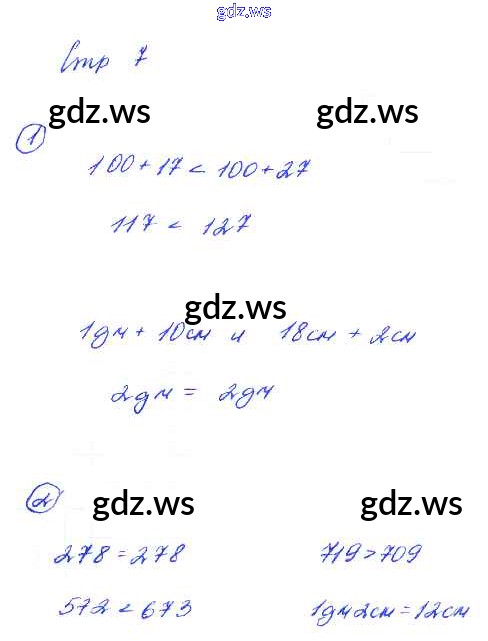 gdz.ws
Стр 7
gdz.ws gdz.ws
1
100+17 < 100+27
117 < 127
gdz.ws
1дм + 10см и 18см + 2см
2дм = 2дм
2
gdz.ws gdz.ws
278 = 278 719 > 709
572 < 673 1дм2см = 12см